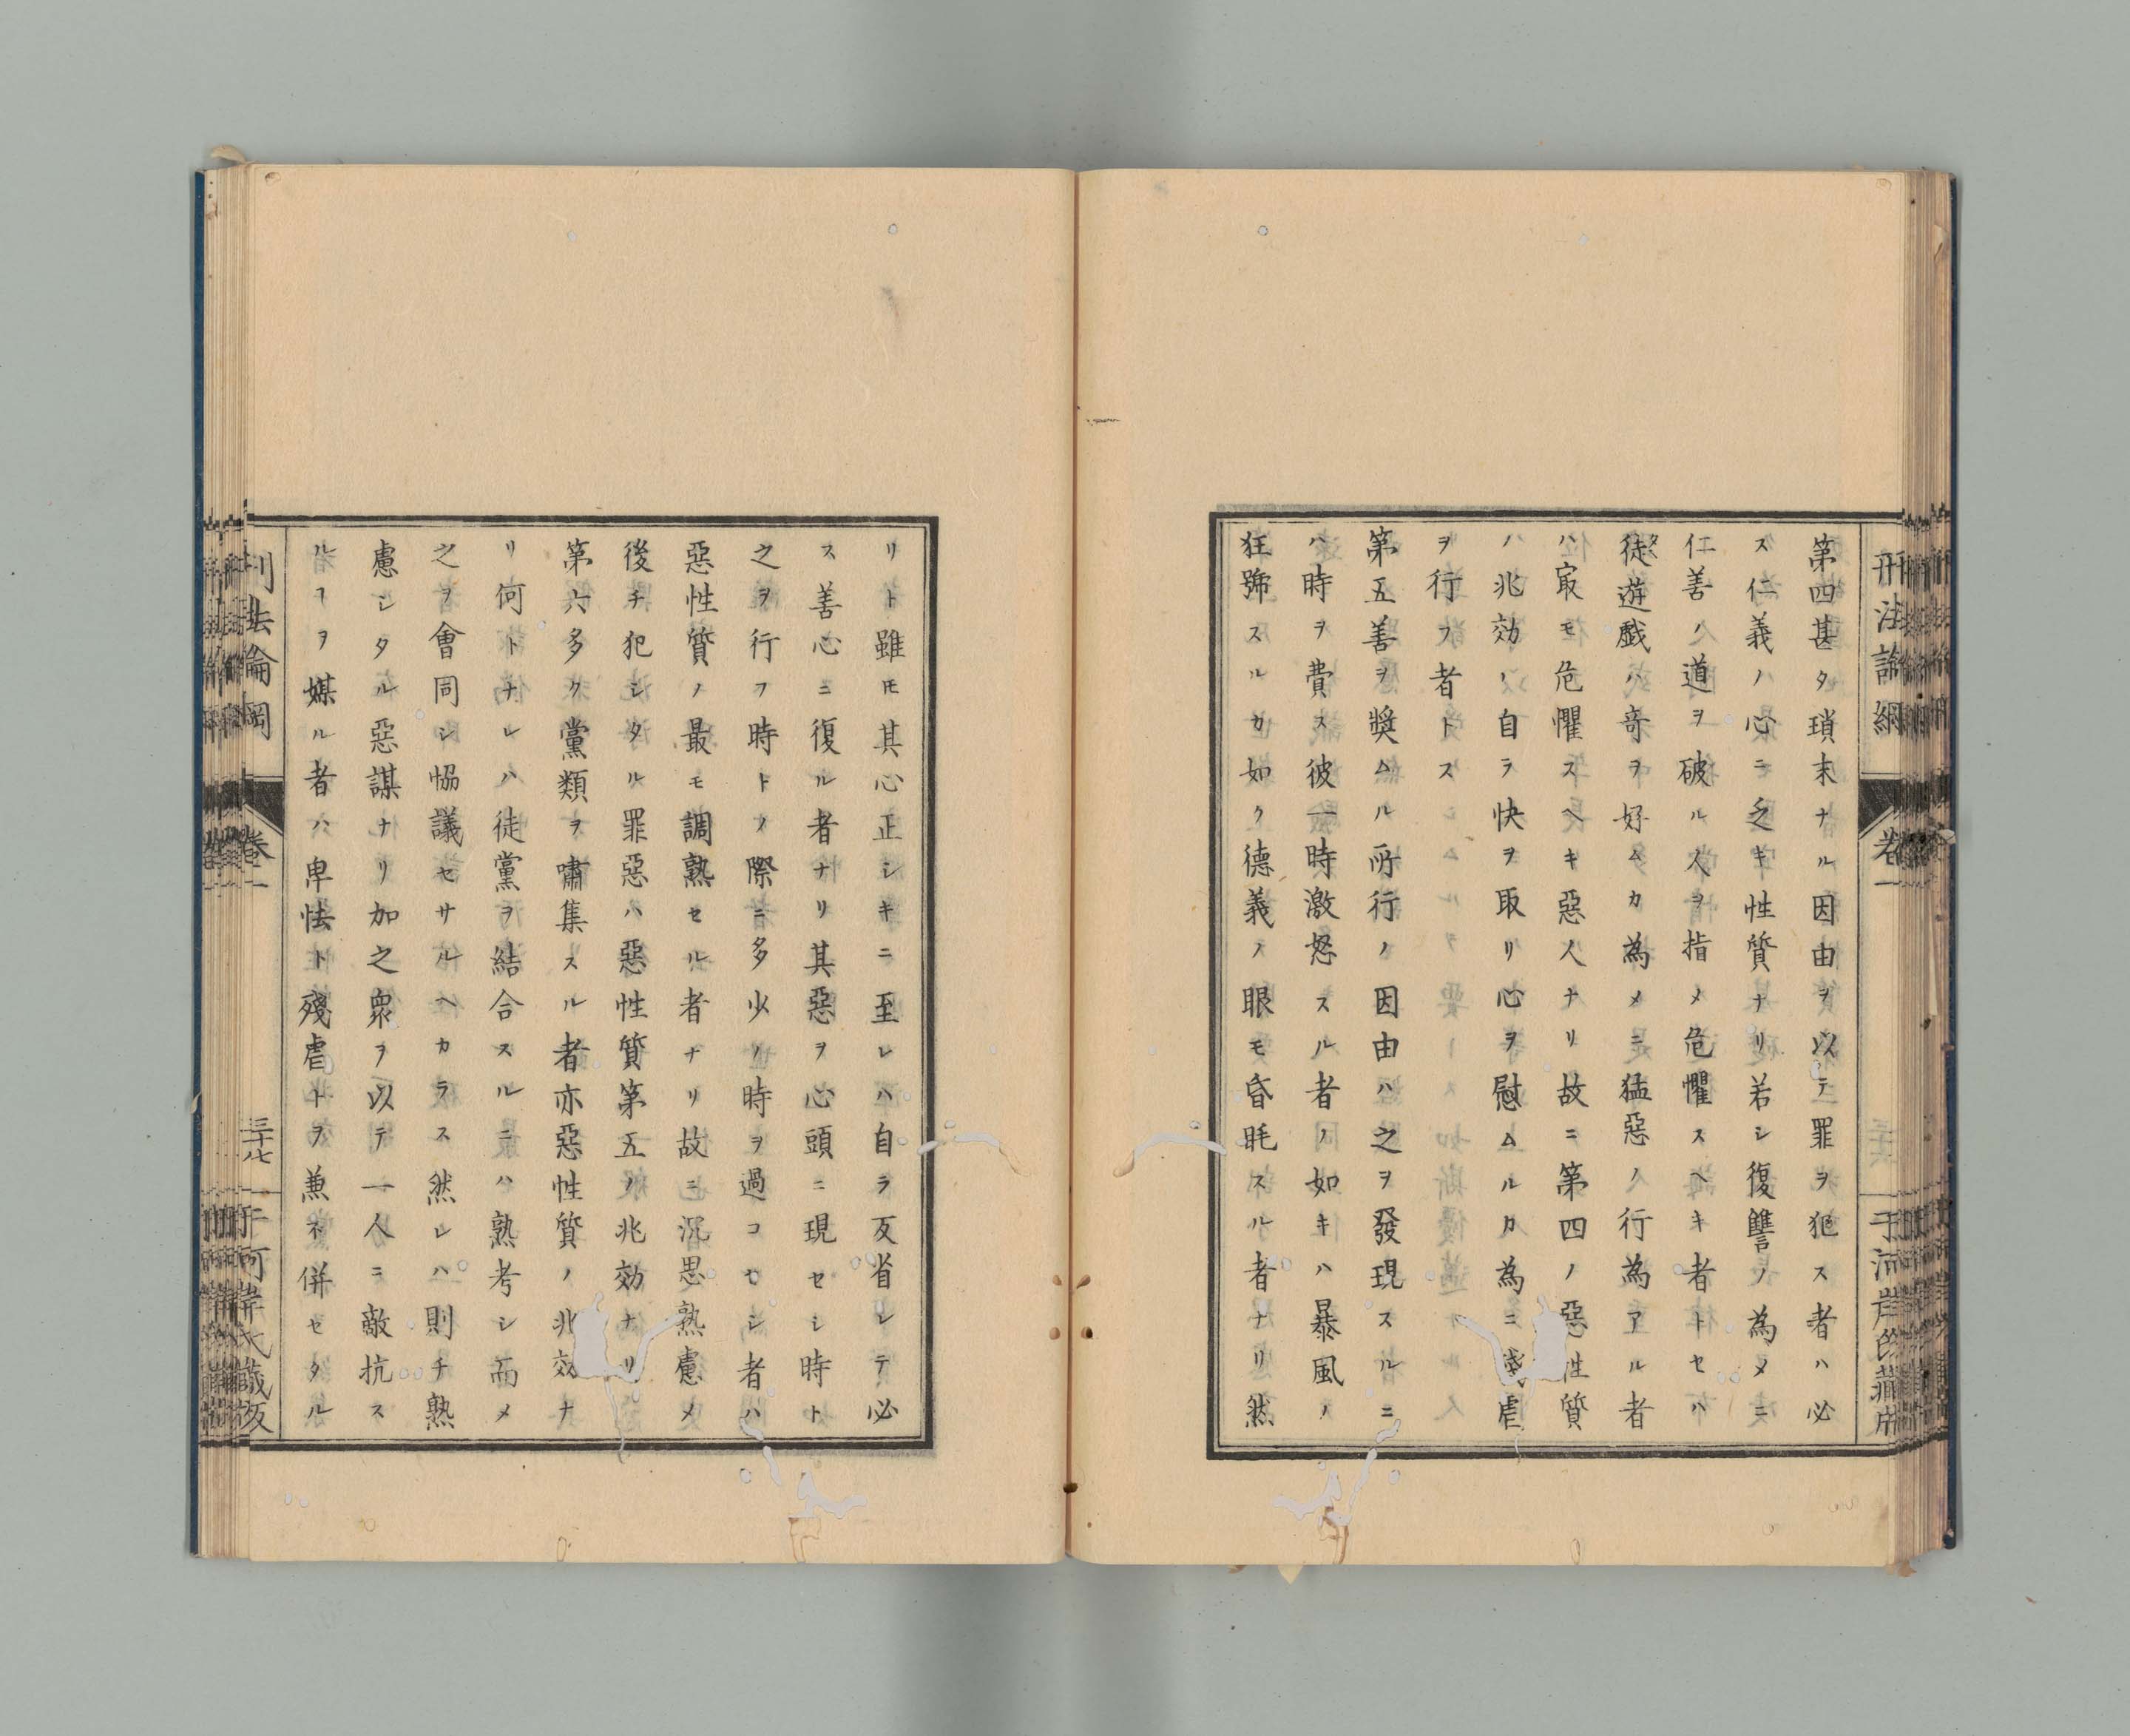 刑法論綱 卷一
第四甚タ瑣末ナル因由ヲ以テ罪ヲ犯ス者ハ必
ス仁義ノ心ニ乏キ性質ナリ若シ復讐ノ為メニ
仁善ノ道ヲ破ル人ヲ指メ危懼スヘキ者トセハ
徒タ遊戯ハ奇ヲ好ムカ為メニ猛惡ノ行為アル者
ハ㝡モ危懼スヘキ惡人ナリ故ニ第四ノ惡性質
ノ兆効ノ自ラ快ヲ取リ心ヲ慰ムルカ為ニ殘虐
ヲ行フ者トス
第五善ヲ奬ムル所行ノ因由ハ之ヲ發現スルニ
ハ時ヲ費ス彼一時激怒スル者ノ如キハ暴風ノ
狂號スルカ如ク德義ノ眼モ昏眊スル者ナリ然
リト雖モ其心正シキニ至レハ自ラ反省シテ必
ス善心ニ復ル者ナリ其惡ヲ心頭ニ現セシ時ト
之ヲ行フ時トノ際ニ多少ノ時ヲ過コセシ者ハ
惡性質ノ最モ調熟セル者ナリ故ニ沉思熟慮メ
後チ犯シタル罪惡ハ惡性質第五ノ兆効ナリ
第六多ク黨類ヲ嘯集スル者亦惡性質ノ兆効ナ
リ何トナレハ徒黨ヲ結合スルニハ熟考シ而メ
之ヲ會同シ恊議セサルヘカラス然レハ則チ熟
慮シタル惡謀ナリ加之衆ヲ以テ一人ニ敵抗ス
ルヿヲ媒ル者ハ卑怯ト殘虐トヲ兼ネ併セタル
刑法論綱 卷一 三十七